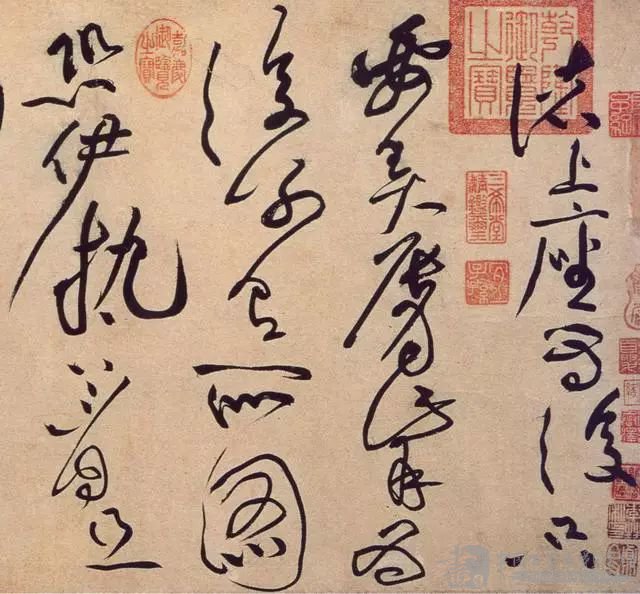 諸上座為復只
要弄脣觜為
復別有所圖
恐伊執
乾隆御覽之寶
三希堂精鑑璽
宜子孫
嘉慶御覽之寶